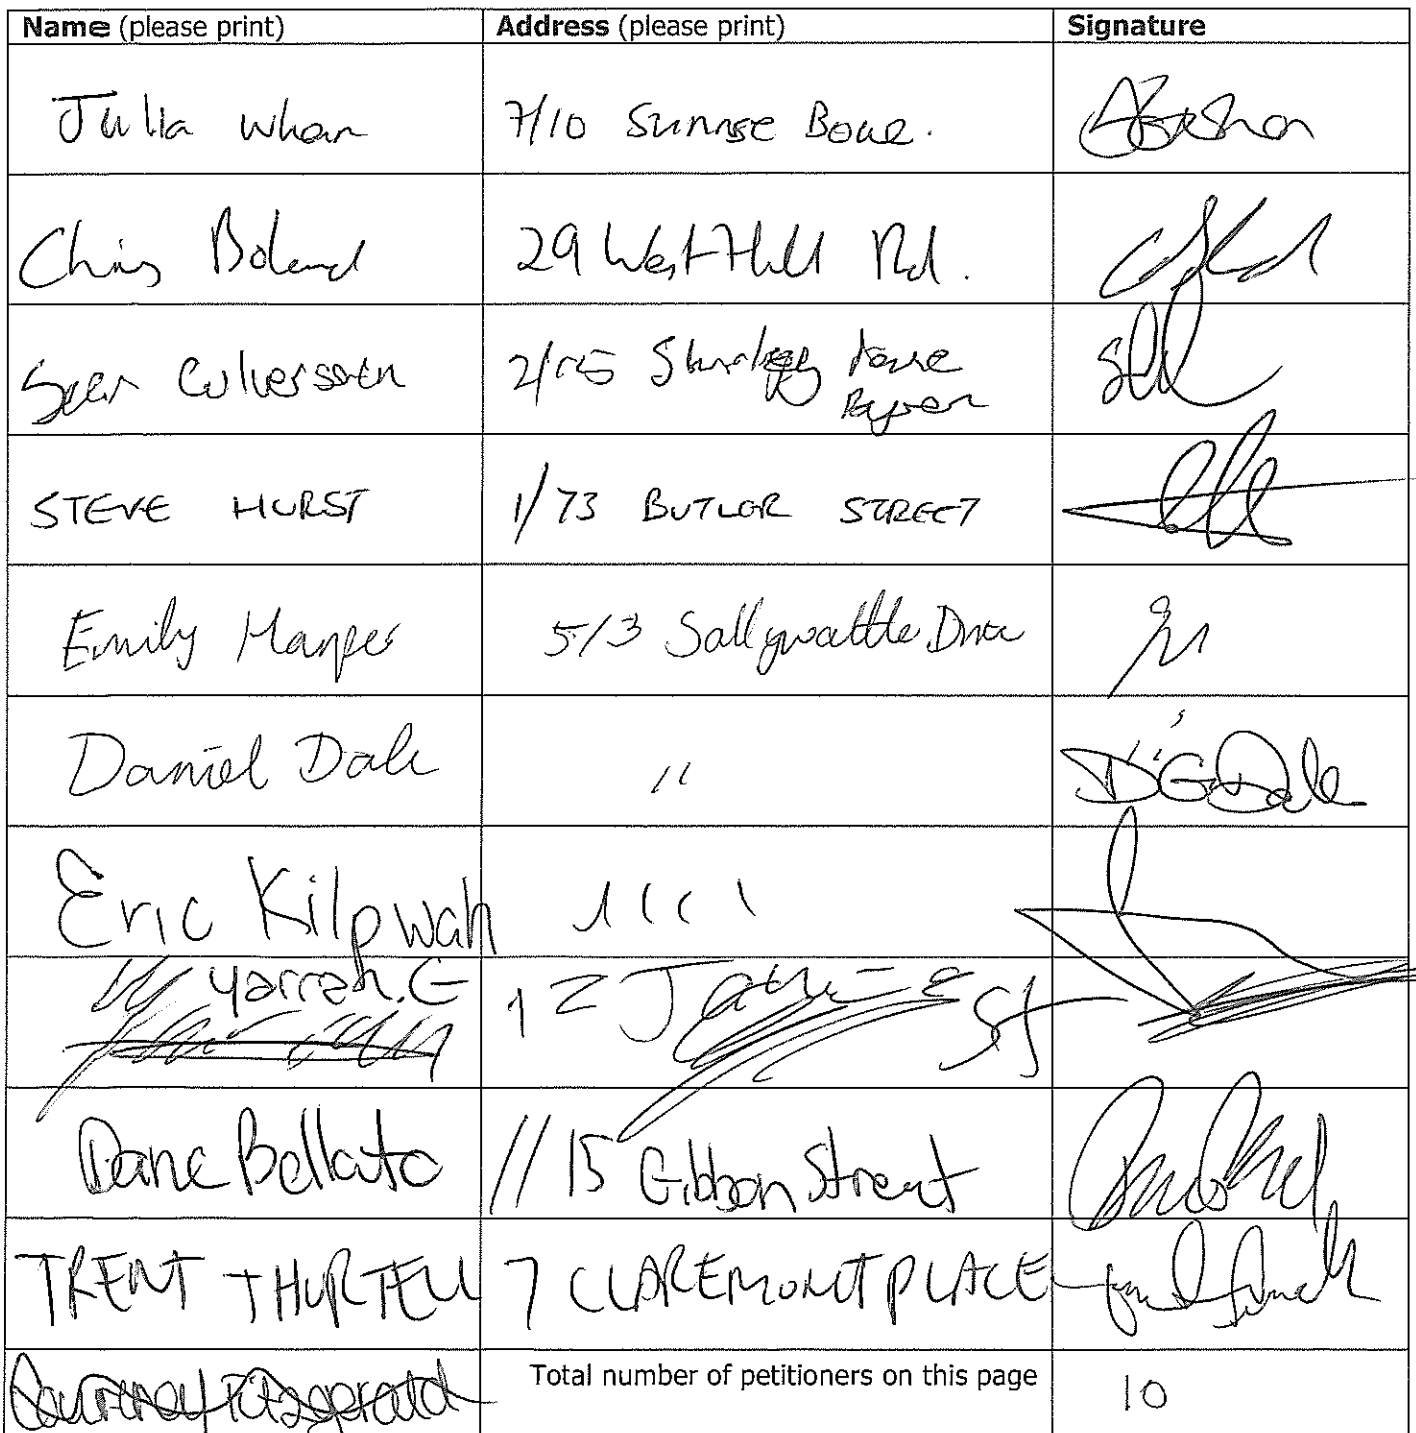 Name (please print) Address (please print) Signature
Julia Whan 7/10 Sunrise Bove.
Chris Boland 29 West Hill Rd.
Sean 2/
STEVE HURST 1/73 BUTLOR STREET
Emily Harper 5/3 Sallywattle Drive
Daniel Dale " D G Dale
Eric Kilpwah
Yarrah.G 12 St
Dane Bellato 1/15 Gibbon Street
TRENT THURTELL 7 CLAREMONT PLACE
Courtney Fitzgerald Total number of petitioners on this page 10